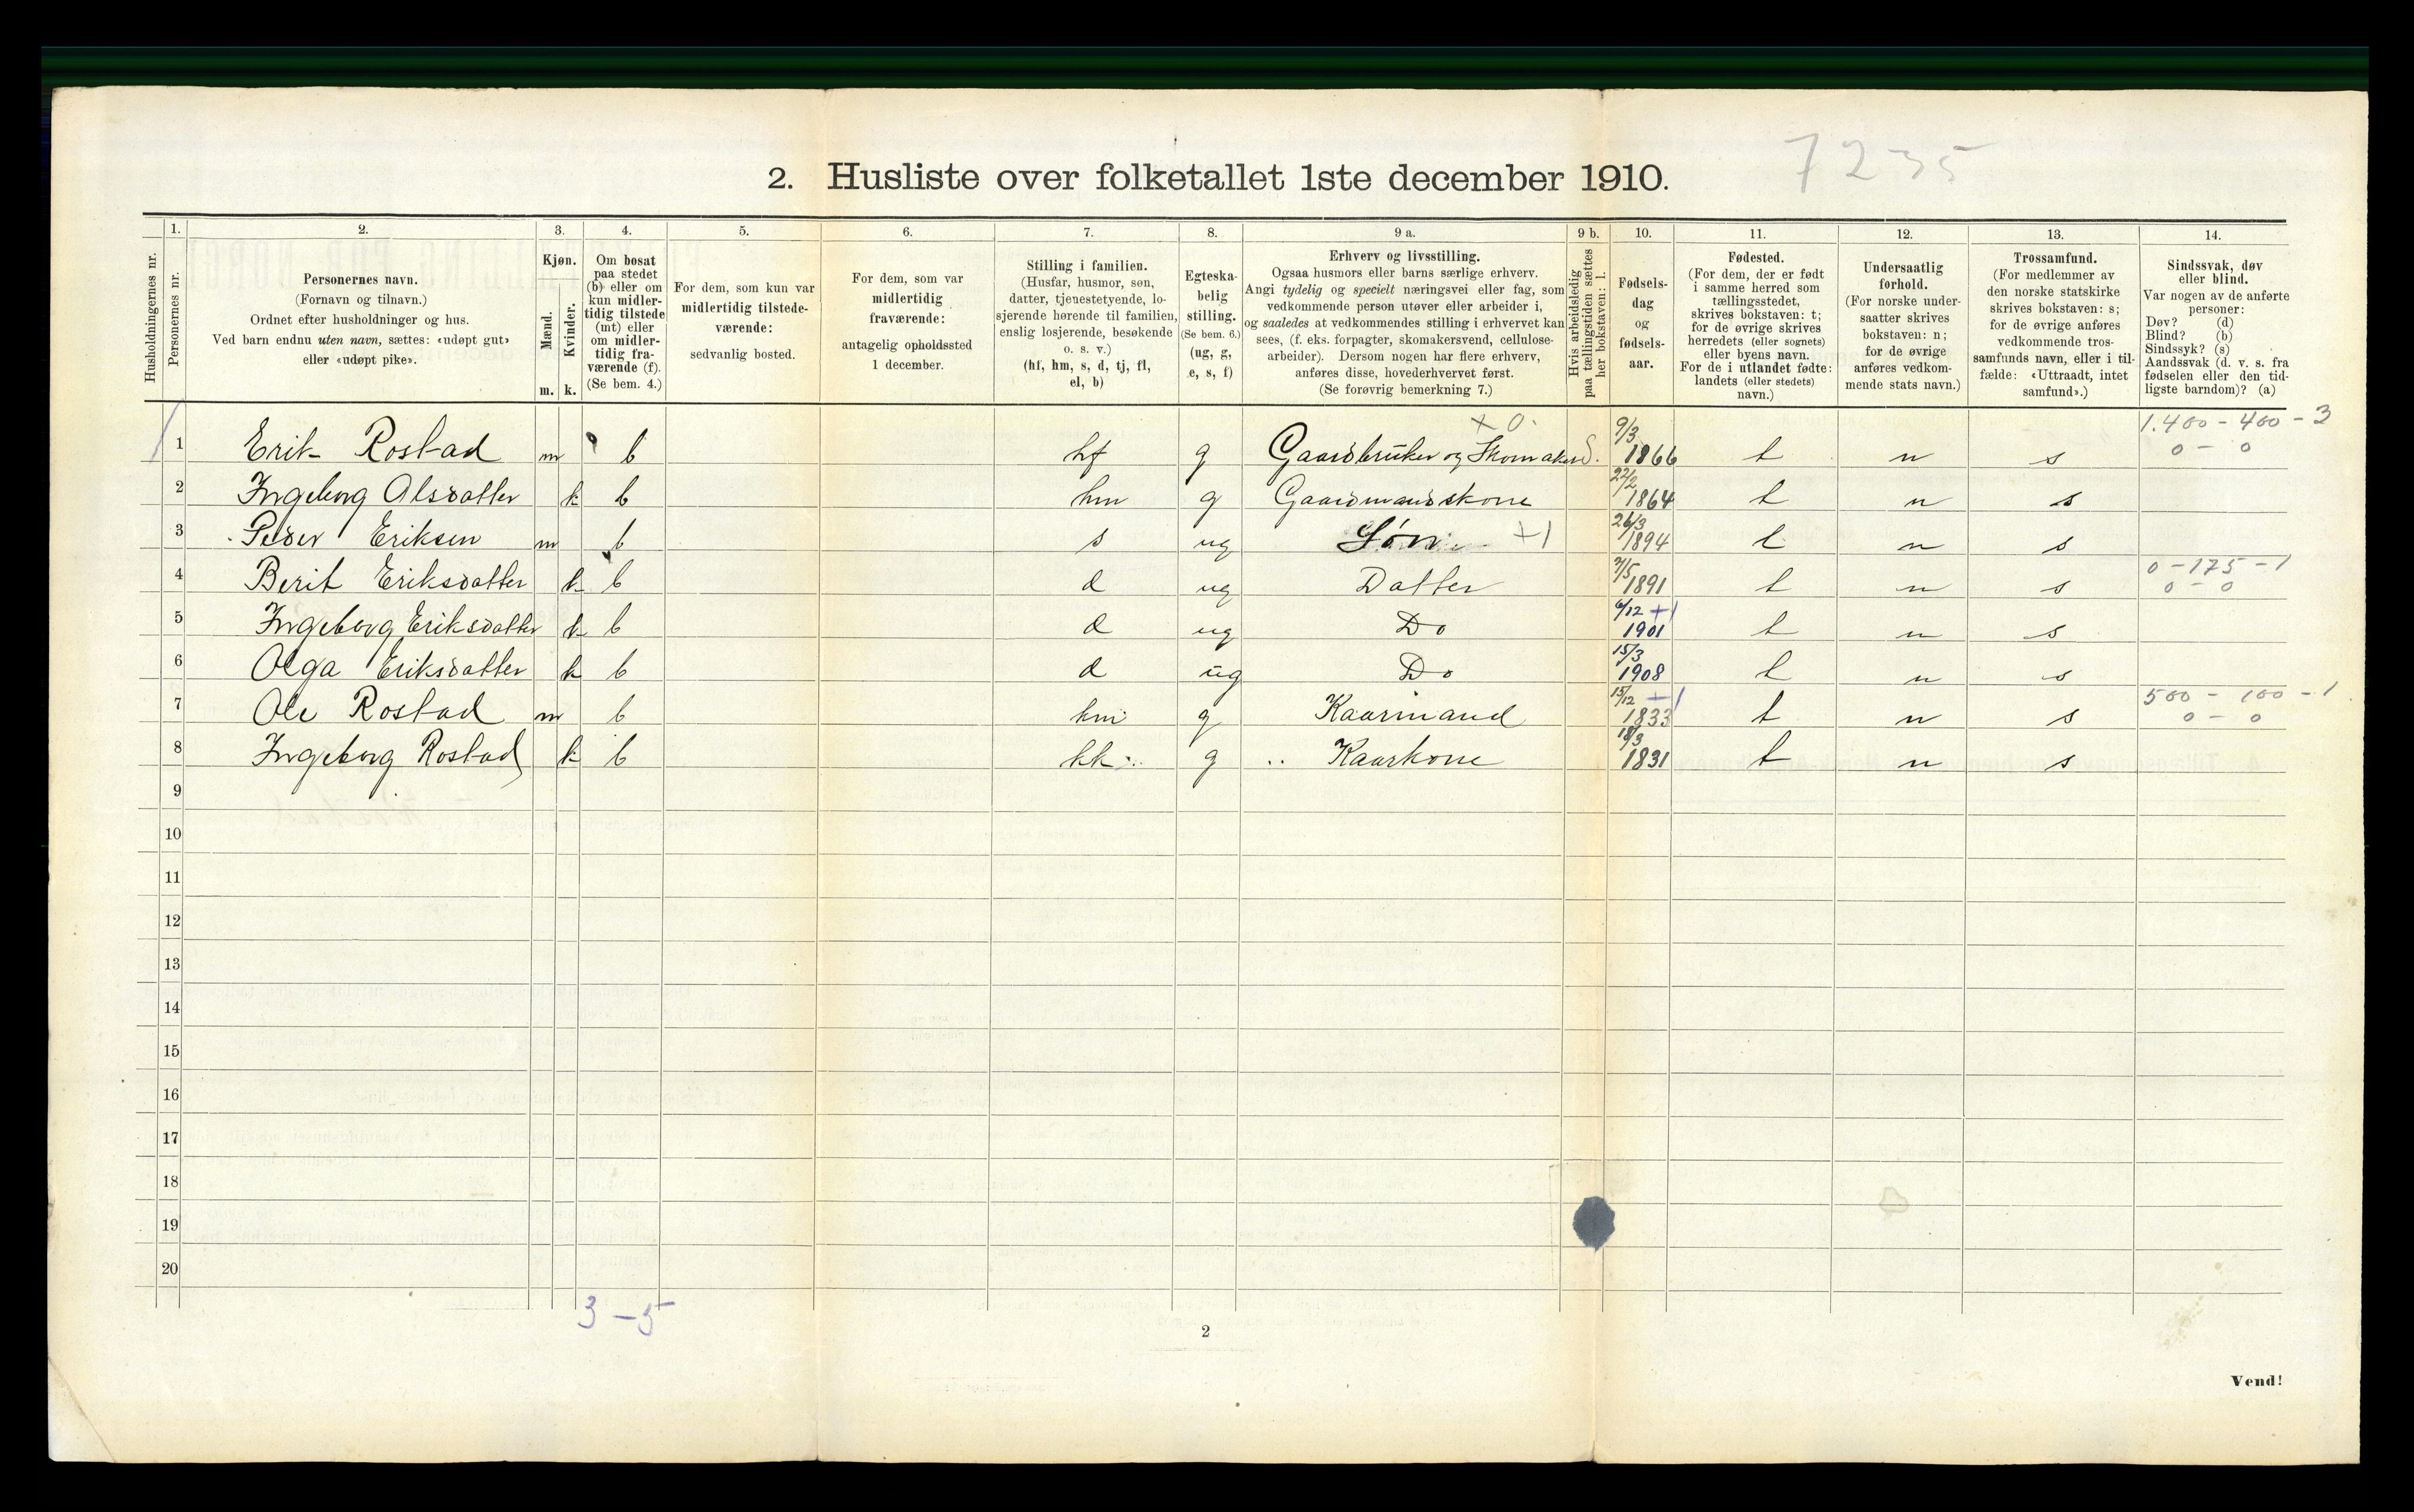 7235
2. Husliste over folketallet 1ste december 1910.
Husholdningernes nr.
1.
Personernes nr.
2.
Personernes navn.
(Fornavn og tilnavn.)
Ordnet efter husholdninger og hus.
Ved barn endnu uten navn, sættes: «udøpt gut»
eller «udøpt pike».
3.
Kjøn.
Mænd.
Kvinder.
m. k.
4.
Om bosat
paa stedet
(b) eller om
kun midler-
tidig tilstede
(mt) eller
om midler-
tidig fra-
værende (f).
(Se bem. 4.)
5.
For dem, som kun var
midlertidig tilstede-
værende:
sedvanlig bosted.
6.
For dem, som var
midlertidig
fraværende:
antagelig opholdssted
1 december.
7.
Stilling i familien.
(Husfar, husmor, søn,
datter, tjenestetyende, lo-
sjerende hørende til familien,
enslig losjerende, besøkende
o. s. v.)
(hf, hm, s, d, tj, fl,
el, b)
8.
Egteska-
belig
stilling.
(Se bem. 6.)
(ug, g,
e, s, f)
9 a.
Erhverv og livsstilling.
Ogsaa husmors eller barns særlige erhverv.
Angi tydelig og specielt næringsvei eller fag, som
vedkommende person utøver eller arbeider i,
og saaledes at vedkommendes stilling i erhvervet kan
sees, (f. eks. forpagter, skomakersvend, cellulose-
arbeider). Dersom nogen har flere erhverv,
anføres disse, hovederhvervet først.
(Se forøvrig bemerkning 7.)
9 b.
Hvis arbeidsledig
paa tællingstiden sættes
her bokstaven: l.
10.
Fødsels-
dag
og
fødsels-
aar.
11.
Fødested.
(For dem, der er født
i samme herred som
tællingsstedet,
skrives bokstaven: t;
for de øvrige skrives
herredets (eller sognets)
eller byens navn.
For de i utlandet fødte:
landets (eller stedets)
navn.)
12.
Undersaatlig
førhold.
(For norske under-
saatter skrives
bokstaven: n;
for de øvrige
anføres vedkom-
mende stats navn.)
13.
Trossamfund.
(For medlemmer av
den norske statskirke
skrives bokstaven: s;
for de øvrige anføres
vedkommende tros-
samfunds navn, eller i til-
fælde: «Uttraadt, intet
samfund».)
14.
Sindssvak, døv
eller blind.
Var nogen av de anførte
personer:
Døv? (d)
Blind? (b)
Sindssyk? (s)
Aandssvak (d. v. s. fra
fødselen eller den tid-
ligste barndom)? (a)
x 0. 9/3 1.400 - 400 - 3
1 Erik Rostad m b hf g Gaardbruker og Skomaker S. 1866 t n s 0 - 0
2 Ingeborg Olsdatter k b hm g Gaardmandskone 27/2 1864 t n s
3 Peder Eriksen m b s ug Søn +1 26/3 1894 t n s
0 - 175 - 1
4 Berit Eriksdatter k b d ug Datter 1891 t n s 0 - 0
5 Ingeborg Eriksdatter k b d ug Do 6/12 +1 1901 t n s
6 Olga Eriksdatter k b d ug Do 15/3 1908 t n s
15/12 +1 500 - 100 - 1
7 Ole Rostad m b km g Kaarmand 1833 t n s 0 - 0
8 Ingeborg Rostad k b kk g Kaarkone 18/3 1831 t n s
9
10
11
12
13
14
15
16
17
18
19
20
3 - 5
2
Vend!